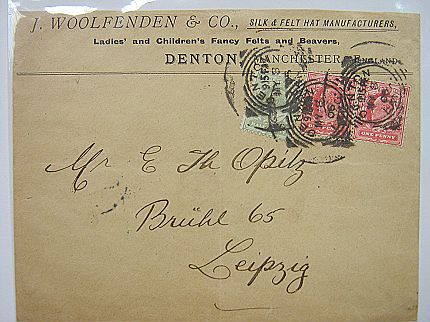 J. WOOLFENDEN & CO., SILK & FELT HAT MANUFACTURERS,
Ladies' and Children's Fancy Felts and Beavers,
DENTON, MANCHESTER, ENGLAND.
ONE PENNY
Mr E Th Opitz
Brühl 65
Leipzig